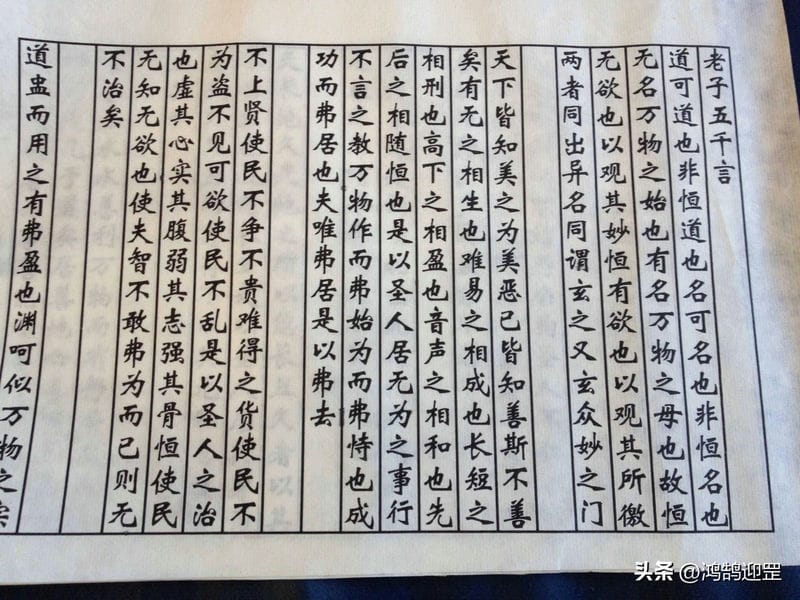 老子五千言
道可道也非恒道也名可名也非恒名也
无名万物之始也有名万物之母也故恒
无欲也以观其妙恒有欲也以观其所徼
两者同出异名同谓玄之又玄众妙之门
天下皆知美之为美恶已皆知善斯不善
矣有无之相生也难易之相成也长短之
相刑也高下之相盈也音声之相和也先
后之相随恒也是以圣人居无为之事行
不言之教万物作而弗始为而弗恃也成
功而弗居也夫唯弗居是以弗去
不上贤使民不争不贵难得之货使民不
为盗不见可欲使民不乱是以圣人之治
也虚其心实其腹弱其志强其骨恒使民
无知无欲也使夫智不敢弗为而已则无
不治矣
道盅而用之有弗盈也渊呵似万物之宗
头条 @鸿鹄迎罡